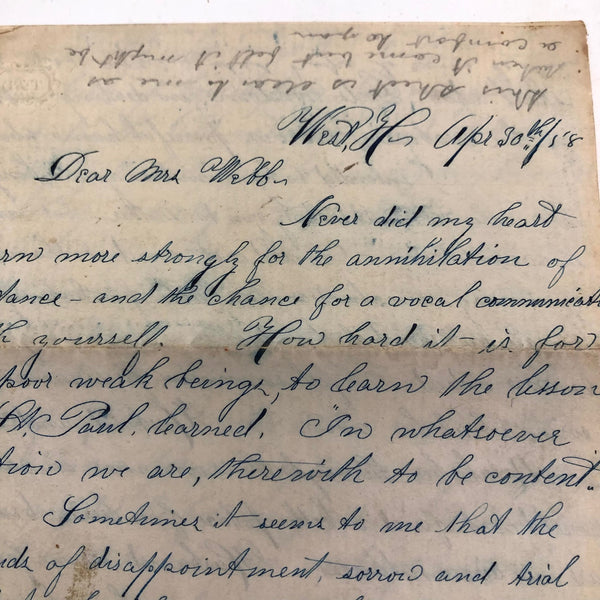 this sheet is dear to me as
when it came but felt it might be
a comfort to you
West, H. Apr 30th/58
Dear Mrs Webb
Never did my heart
rn more strongly for the annihilation of
tance - and the chance for a vocal communicati
h yourself. How hard it - is for
poor weak beings, to learn the lesson
St. Paul, learned, "In whatsoever
tion we are, therewith to be content".
Sometimes it seems to me that the
uds of disappointment, sorrow and trial